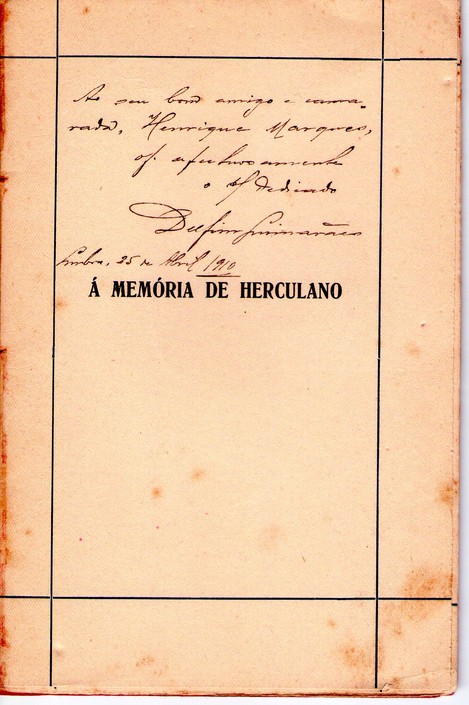 Ao seu bom amigo e cama-
rada, Henrique Marques,
of. afectuosamente
o dedicado
Delfim Guimarães
Lisboa, 25 de Abril 1910
Á MEMÓRIA DE HERCULANO